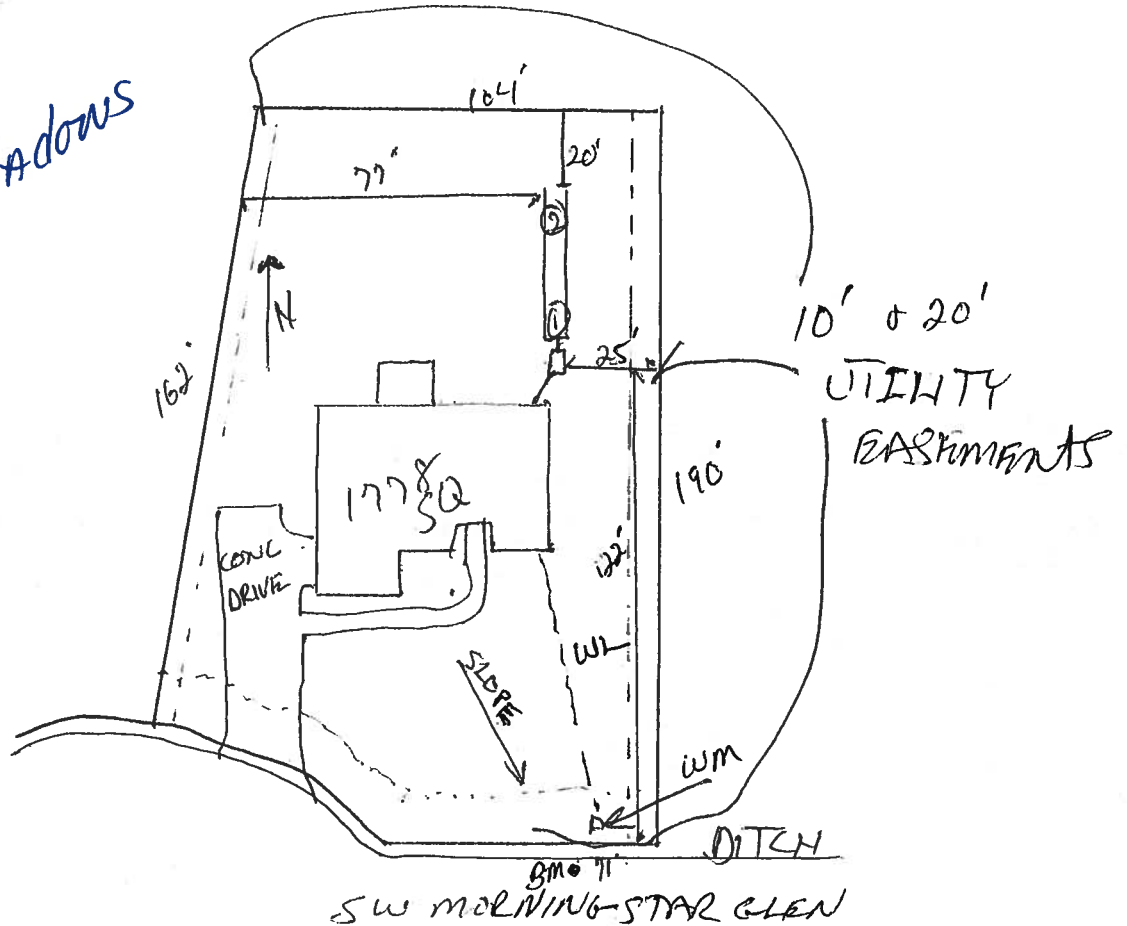 Adows
104'
20'
77'
2
N
1
25'
162'
10' & 20'
UTILITY
EASEMENTS
190'
CONC
DRIVE
122'
WL
SLOPE
WM
DITCH
SW MORNINGSTAR GLEN